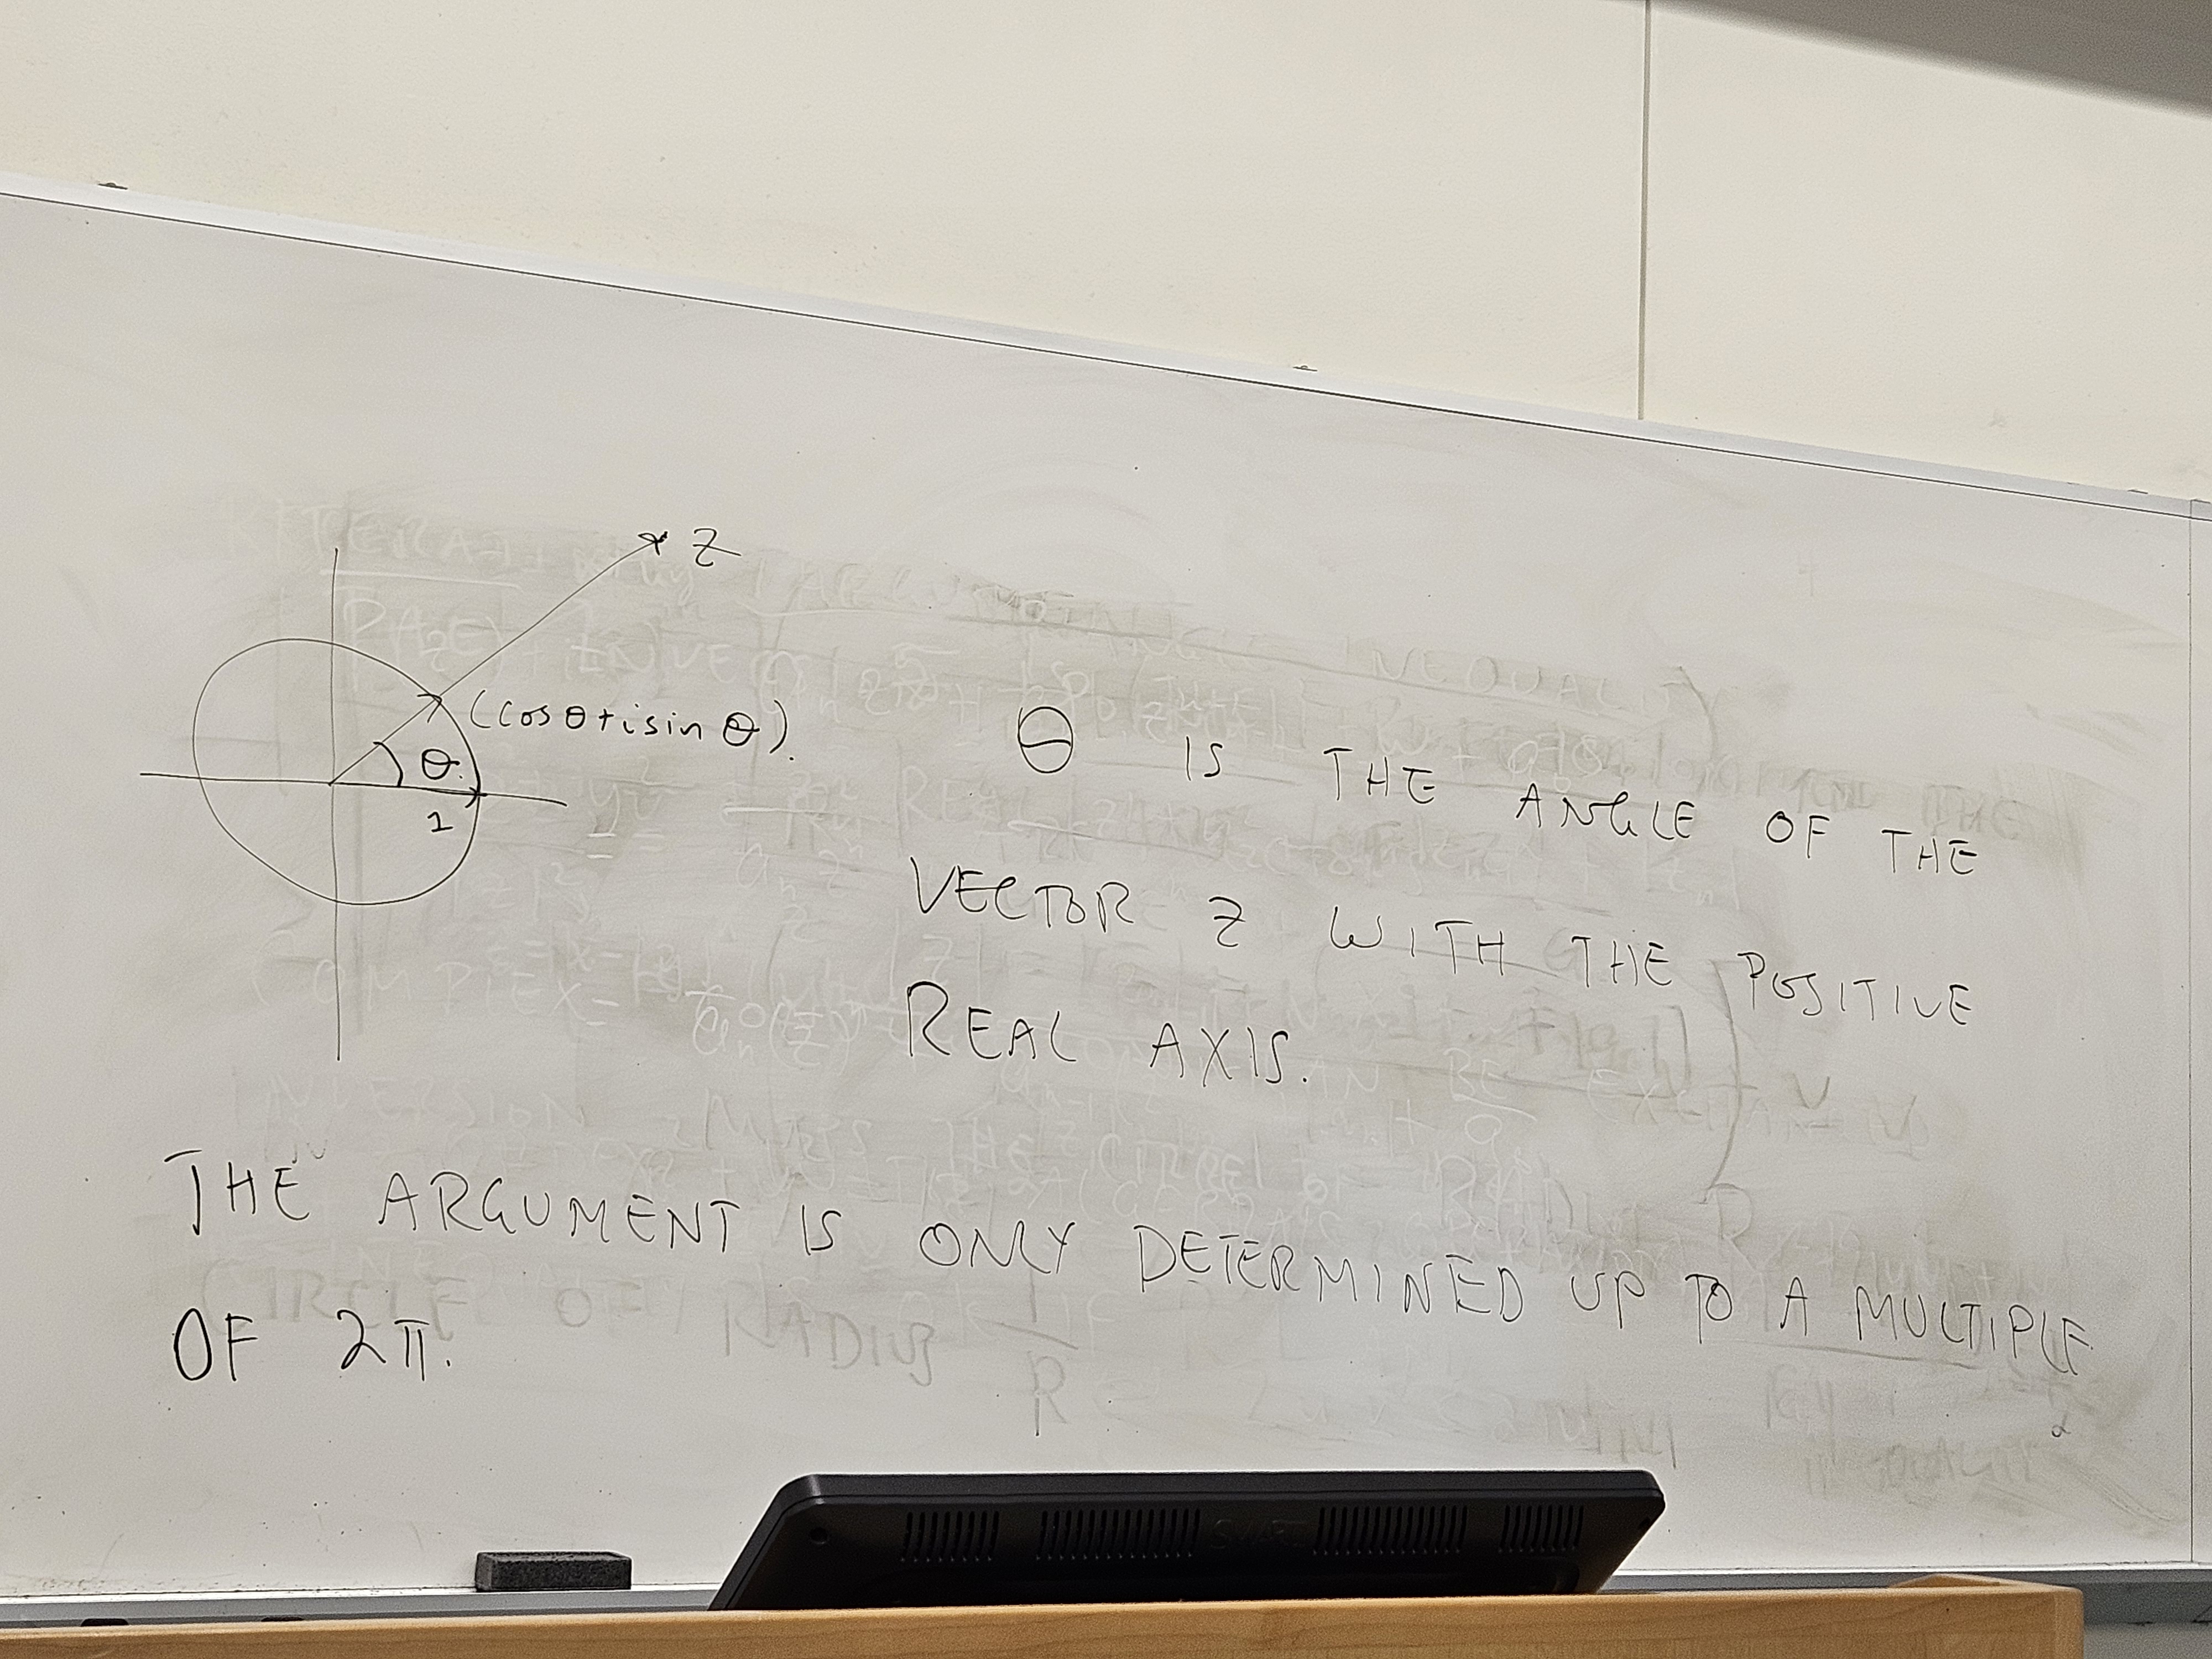 z
(cos θ + i sin θ).
θ
1
θ IS THE ANGLE OF THE
VECTOR Z WITH THE POSITIVE
REAL AXIS.
THE ARGUMENT IS ONLY DETERMINED UP TO A MULTIPLE
OF 2π.
CIRCLE OF RADIUS 1/R